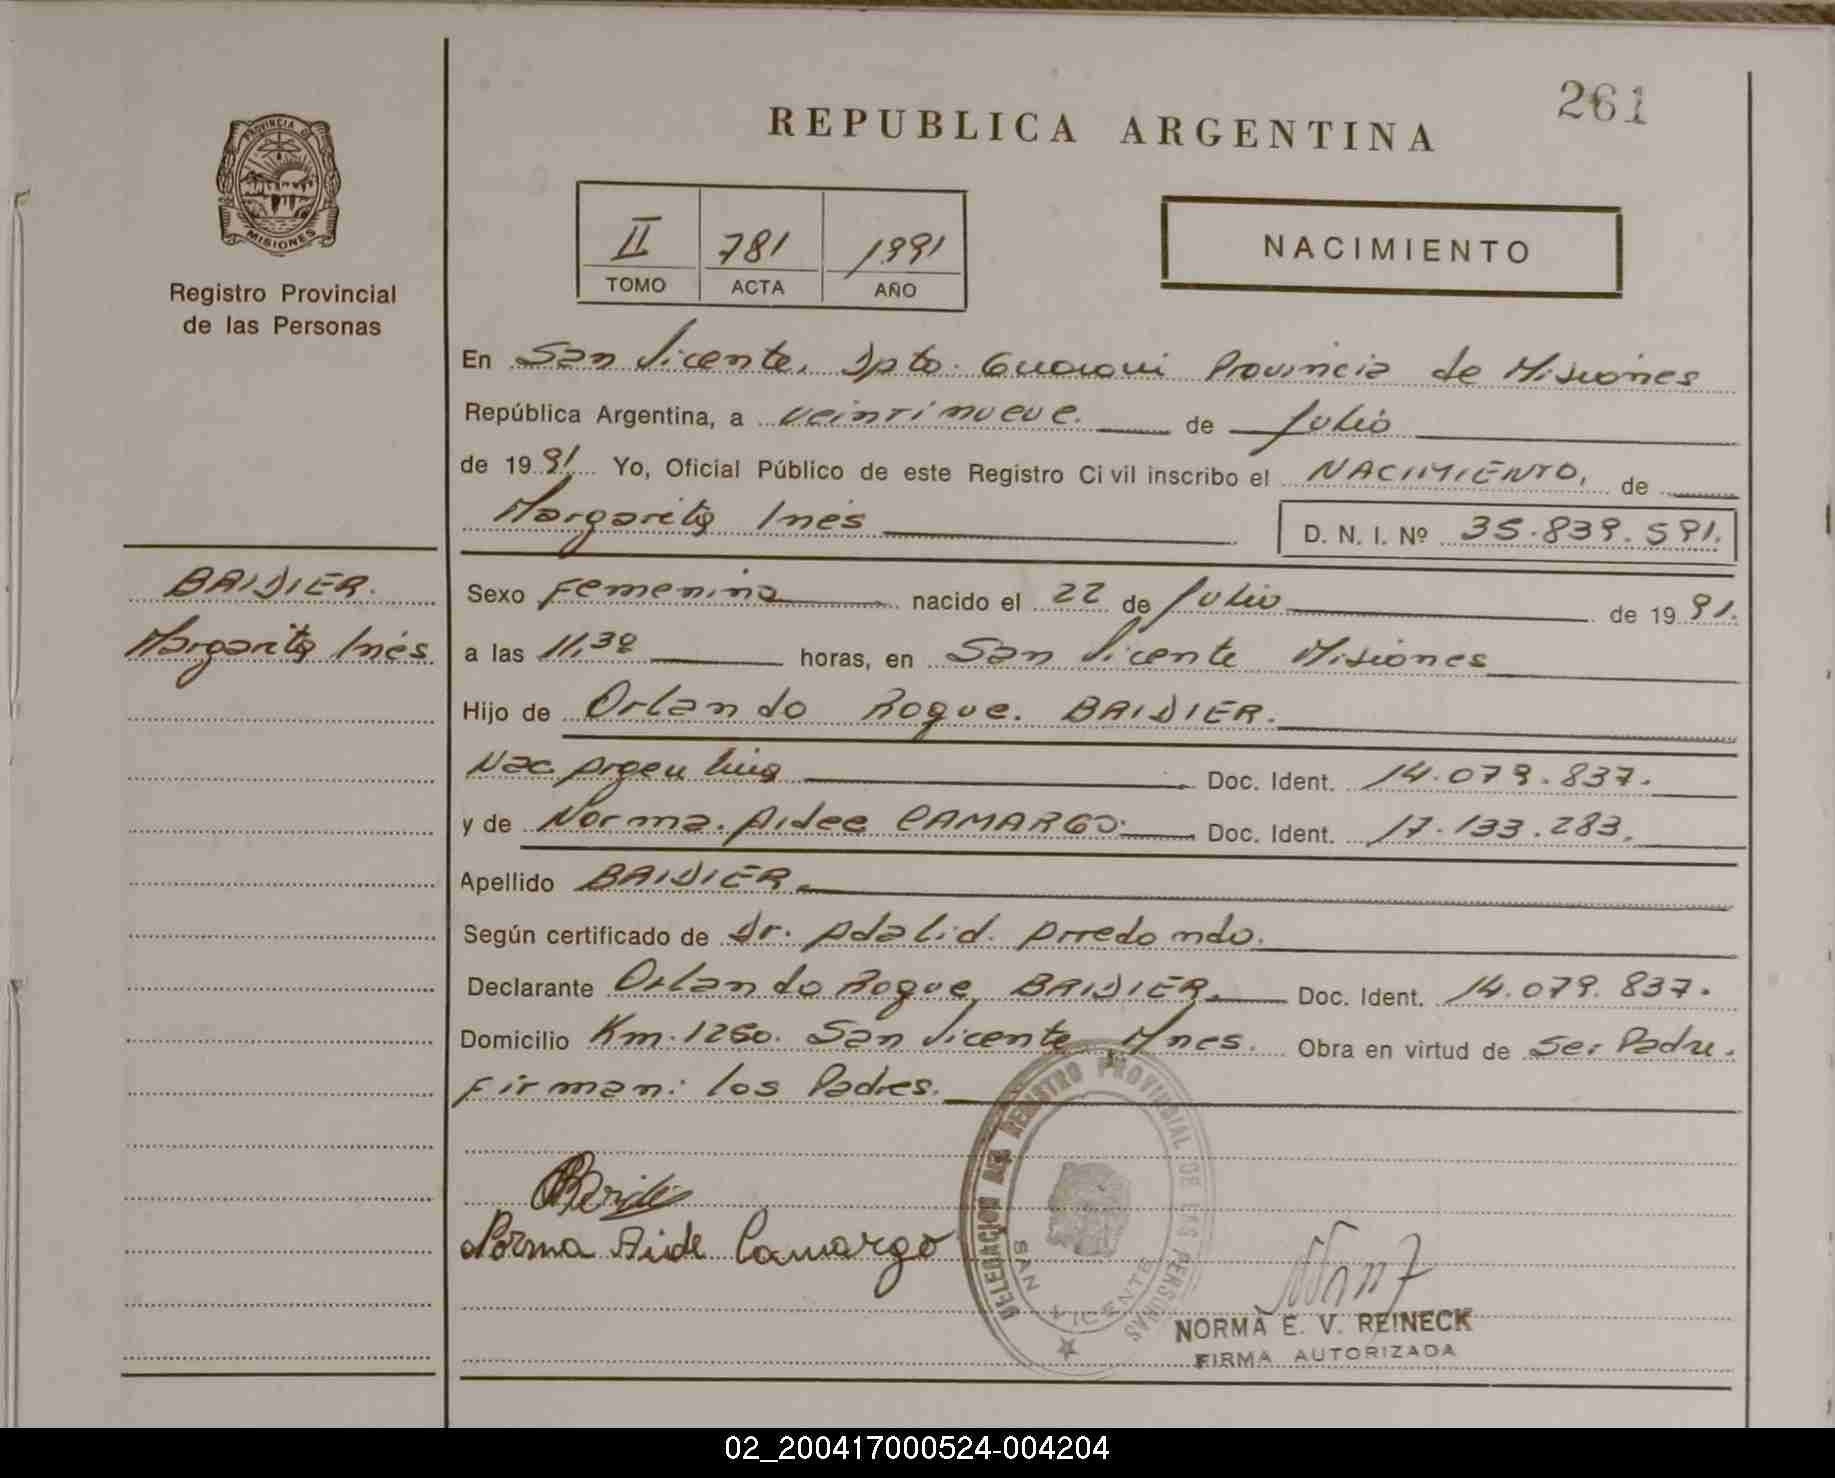 261
REPUBLICA ARGENTINA
PROVINCIA DE
MISIONES
Registro Provincial
de las Personas
II 781 1991
TOMO ACTA AÑO
NACIMIENTO
En San Vicente, Dpto. Guarani Provincia de Misiones
República Argentina, a veintinueve. de Julio
de 19 91 Yo, Oficial Público de este Registro Civil inscribo el NACIMIENTO, de
Margarita Inés D. N. I. Nº 35.839.591.
BAIDIER.
Margarita Inés
Sexo Femenino nacido el 22 de Julio de 19 91.
a las 11,30 horas, en San Vicente Misiones
Hijo de Orlando Roque. BAIDIER.
Nac argentina Doc. Ident. 14.079.837.
y de Norma. Aidee CAMARGO. Doc. Ident. 17.133.283.
Apellido BAIDIER.
Según certificado de Dr. Adalid. Arredondo.
Declarante Orlando Roque BAIDIER. Doc. Ident. 14.079.837.
Domicilio Km. 1260. San Vicente Mnes. Obra en virtud de Ser Padre.
Firman: los Padres.
Norma Aide Camargo
DELEGACION DEL REGISTRO PROVINCIAL DE LAS PERSONAS
SAN VICENTE
NORMA E. V. REINECK
FIRMA AUTORIZADA
02_200417000524-004204